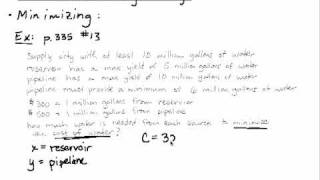 • Minimizing:
Ex: p.335 #13
Supply city with at least 10 million gallons of water
reservoir has a max yield of 5 million gallons of water
pipeline has a max yield of 10 million gallons of water
pipeline must provide a minimum of 6 million gallons of water
$300 = 1 million gallons from reservoir
$500 = 1 million gallons from pipeline
how much water is needed from each source to minimize
cost of water?
x = reservoir
y = pipeline
C = 3